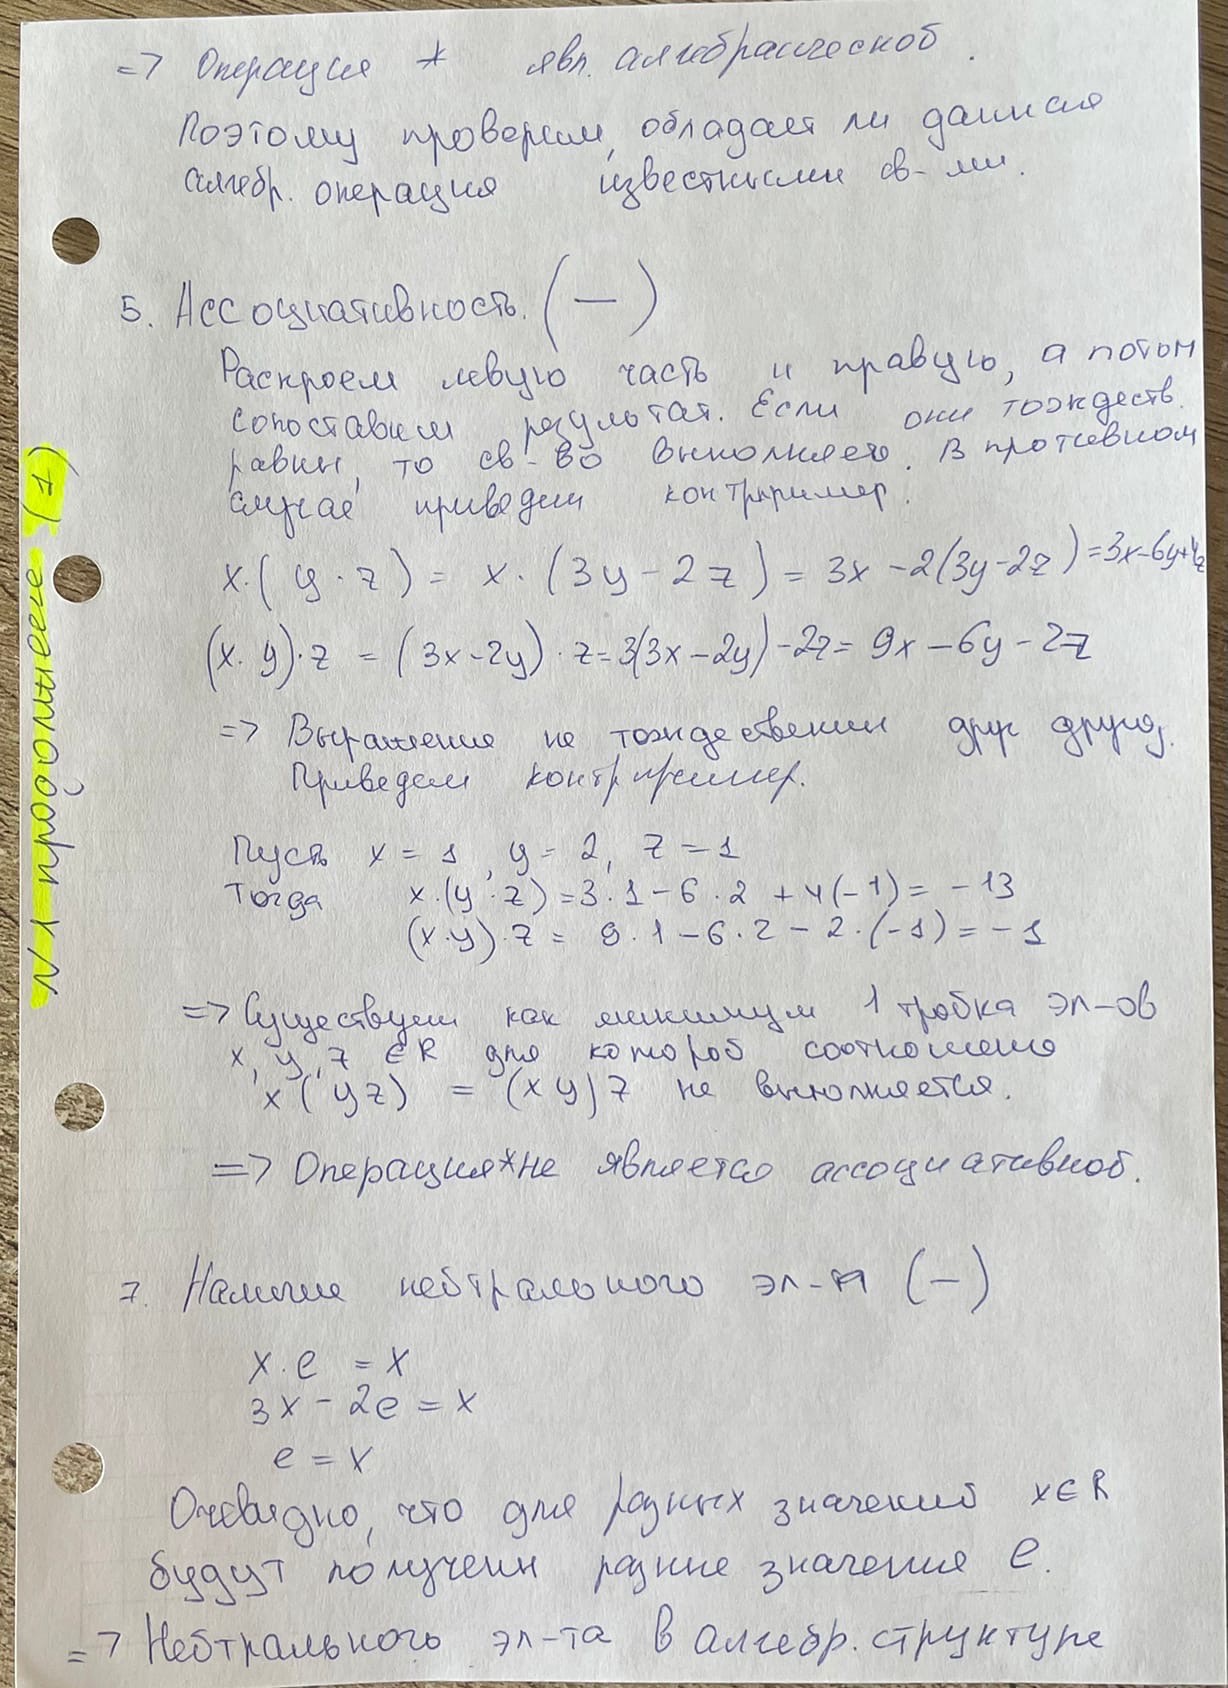 => Операция * явл. алгебраической.
Поэтому проверим, обладает ли данная
алгебр. операция известными св-ми.
5. Ассоциативность. (—)
Раскроем левую часть и правую, а потом
сопоставим результат. Если они тождеств.
равны, то св-во выполняется. В противном
случае приведем контрпример.
x·(y·z) = x·(3y-2z) = 3x-2(3y-2z) = 3x-6y+4z
(x·y)·z = (3x-2y)·z = 3(3x-2y)-2z = 9x-6y-2z
=> Выражения не тождественны друг другу.
Приведем контрпример.
Пусть x = 1, y = 2, z = 1
Тогда x·(y·z) = 3·1-6·2+4(-1) = -13
(x·y)·z = 9·1-6·2-2·(-1) = -1
=> Существует как минимум 1 тройка эл-ов
x, y, z ∈ R для которой соотношение
x(yz) = (xy)z не выполняется.
=> Операция * не является ассоциативной.
7. Наличие нейтрального эл-та (—)
x·e = x
3x-2e = x
e = x
Очевидно, что для разных значений x∈R
будут получены разные значения e.
=> Нейтрального эл-та в алгебр. структуре
N 1 продолжение (1)